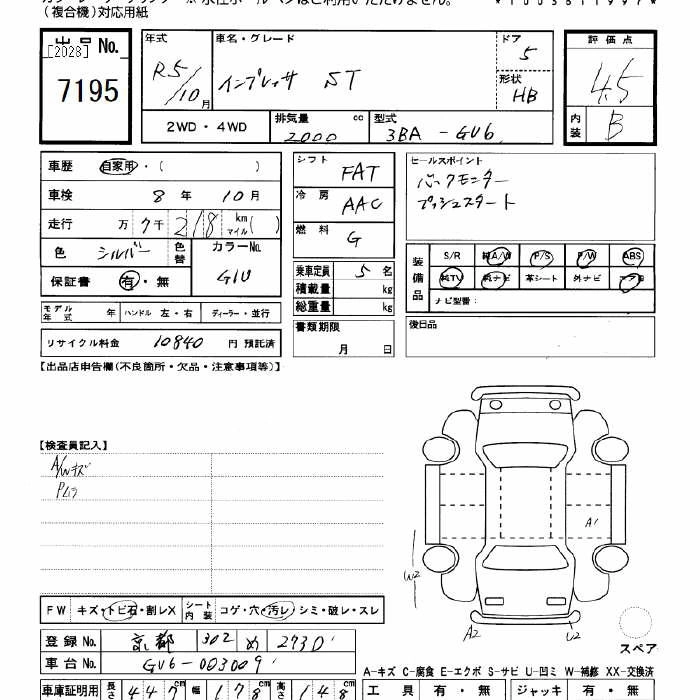 (複合機)対応用紙
出品No.
[2028]
7195
年式 車名・グレード ドア 評価点
R5/10月 インプレッサ ST 5 4.5
形状 HB
2WD・4WD 排気量 cc 型式 内装 B
2000 3BA - GU6
車歴 自家用・( ) シフト FAT セールスポイント
車検 8年 10月 冷房 AAC バックモニター
走行 万 7千 218 km マイル( ) 燃料 G プッシュスタート
色 シルバー 色替 カラーNo. G1U
保証書 有・無
乗車定員 5名
積載量 kg
総重量 kg
装備品 S/R 純A/W P/S P/W ABS
純TV 純ナビ 革シート 外ナビ エアB
ナビ型番:
モデル年式 年 ハンドル 左・右 ディーラー・並行
書類期限 月 日
後日品
リサイクル料金 10840 円 預託済
【出品店申告欄(不良箇所・欠品・注意事項等)】
【検査員記入】
A/Wキズ
Pムラ
A1
W2
A2 U2
スペア
FW キズ・トビ石・割レX シート内装 コゲ・穴・汚レ・シミ・破レ・スレ
登録No. 京都 302 め 2730
車台No. GU6-003009
A-キズ C-腐食 E-エクボ S-サビ U-凹ミ W-補修 XX-交換済
車庫証明用 長さ 447cm 幅 178cm 高さ 148cm 工具 有・無 ジャッキ 有・無